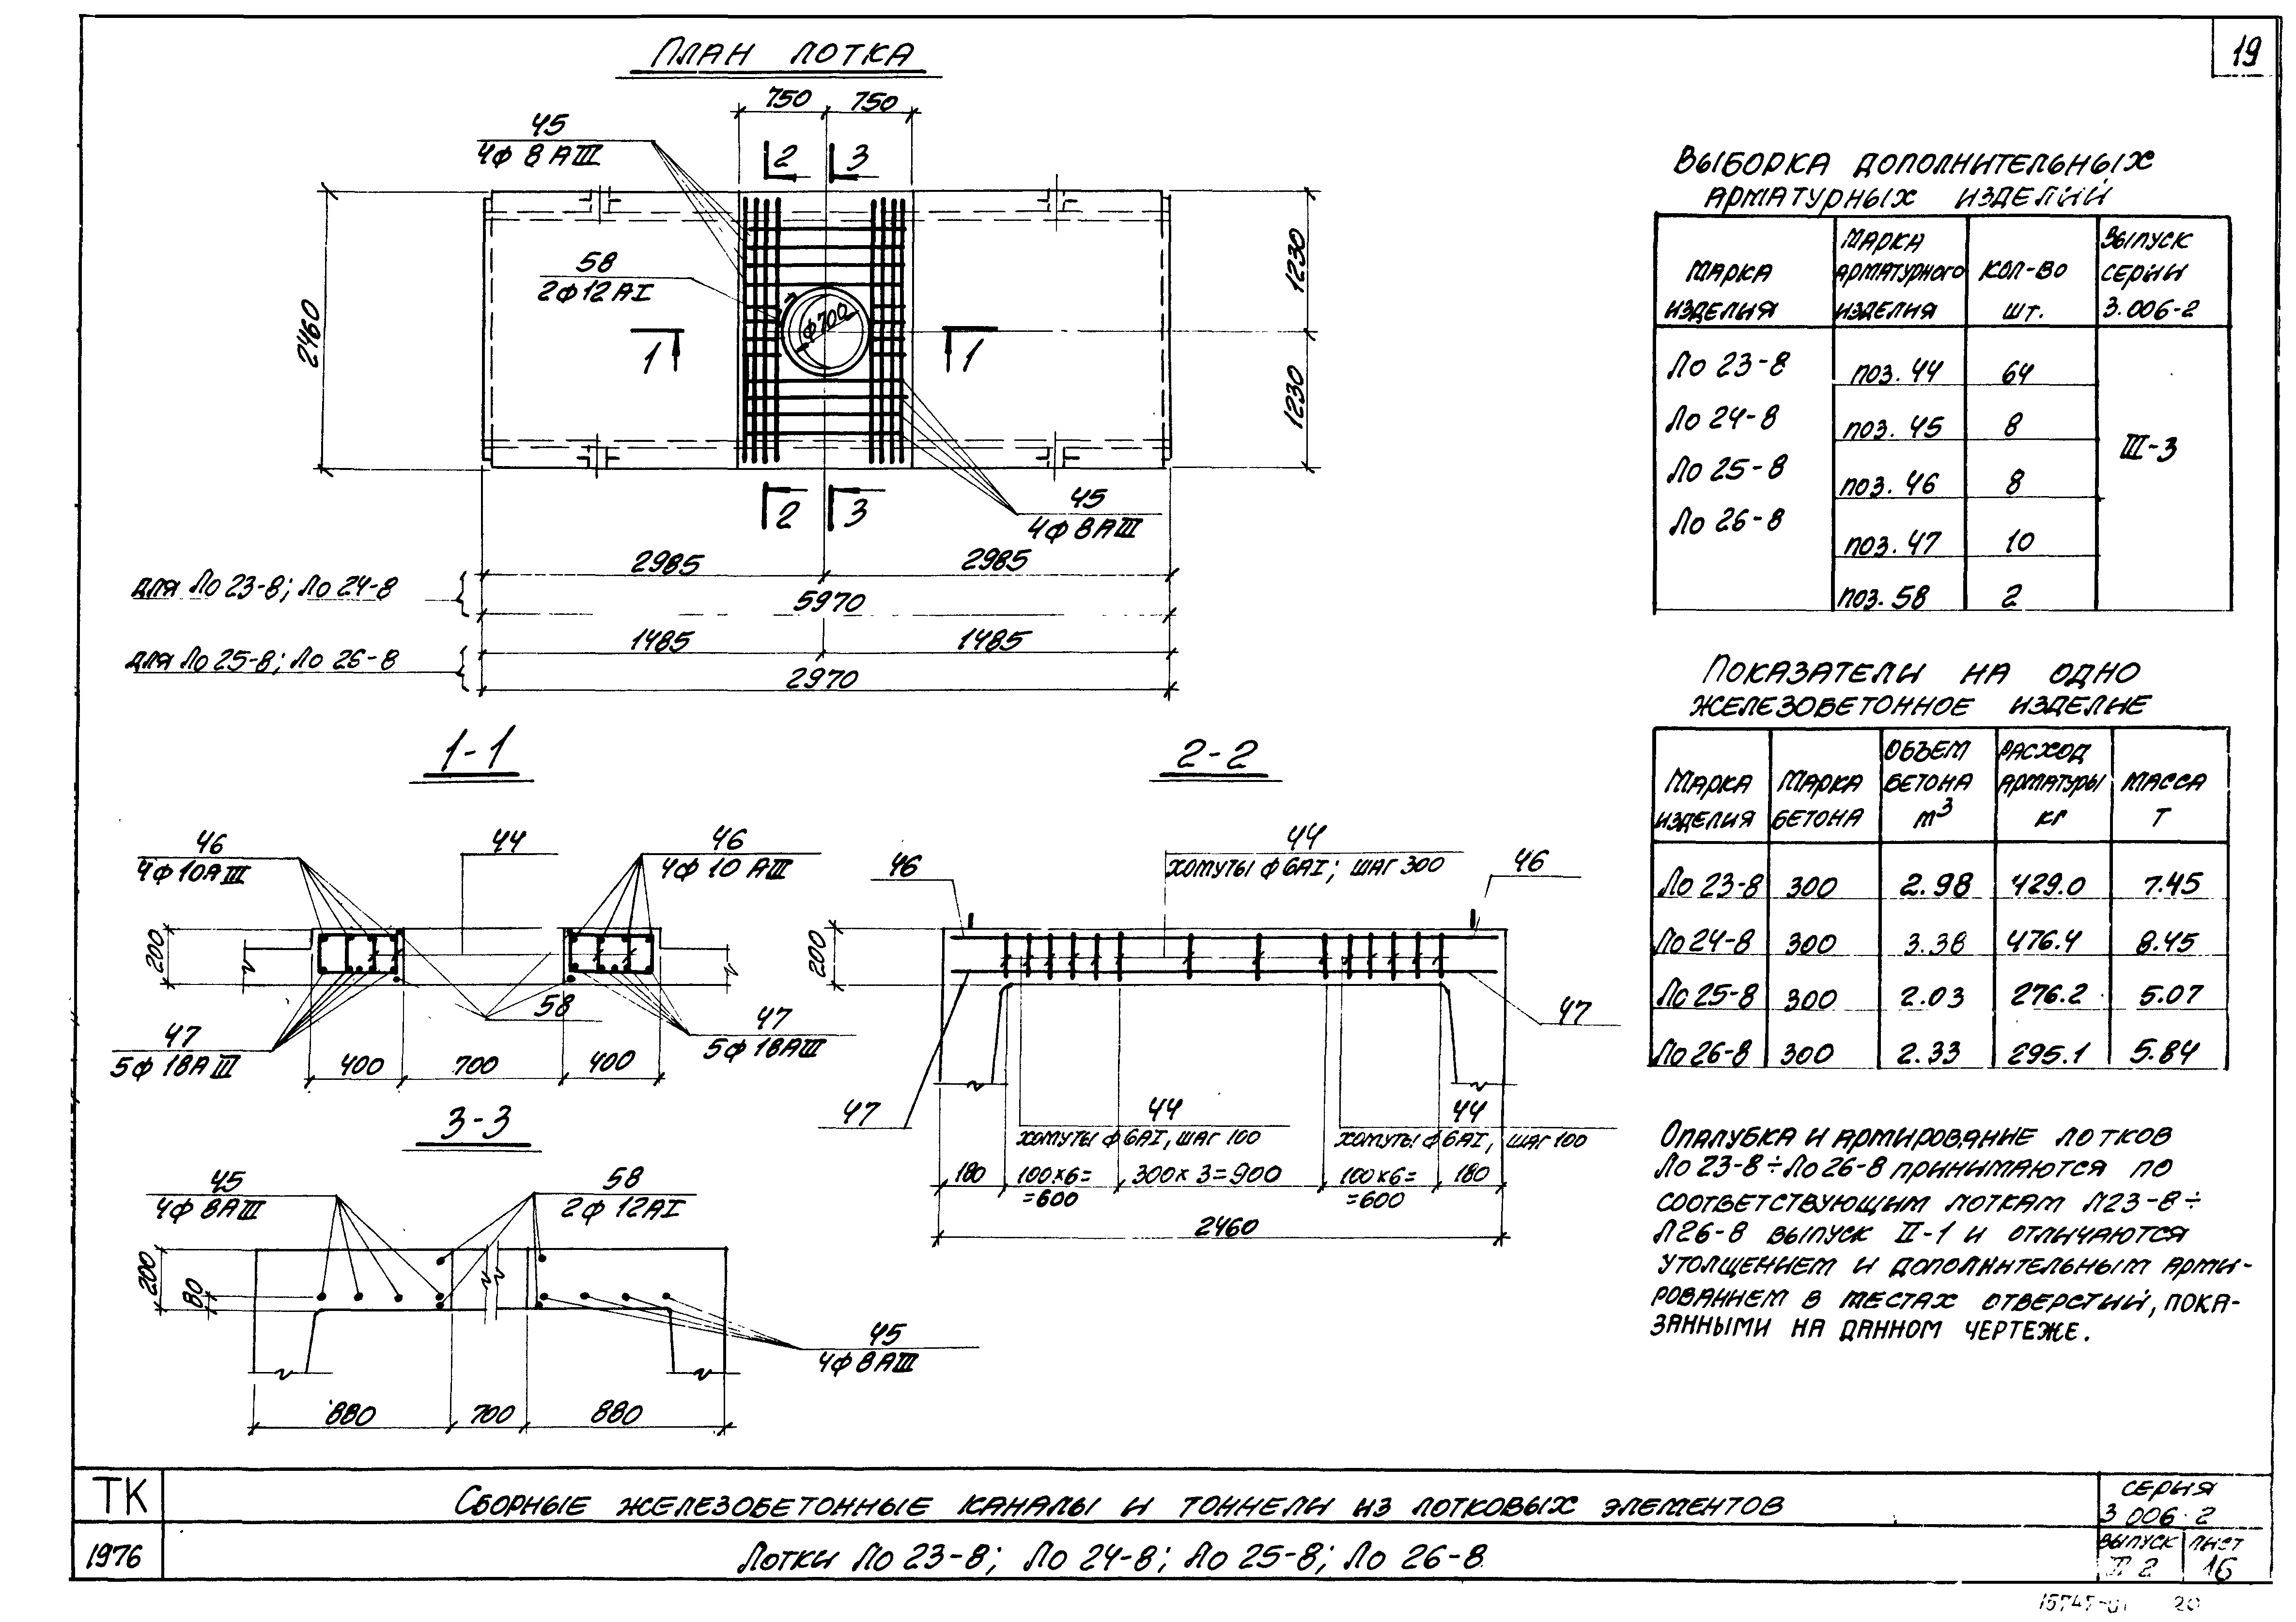 19
План лотка
750 750
45
4ф 8 АIII
2 3
58
2ф12АI
ф700
1 1
2460
1230
1230
2 3
45
4ф8АIII
2985 2985
для Ло 23-8; Ло 24-8
5970
1485 1485
для Ло 25-8; Ло 26-8
2970
1-1
46
4ф10АIII
44
46
4ф 10 АIII
200
58
47
5ф 18АIII
47
5ф 18АIII
400 700 400
2-2
44
хомуты ф 6АI; шаг 300
46
46
200
47
47
44
хомуты ф 6АI, шаг 100
44
хомуты ф 6АI, шаг 100
180 100х6= 300х 3=900 100х6= 180
=600 =600
2460
3-3
45
4ф 8АIII
58
2ф 12АI
200
80
45
4ф 8АIII
880 700 880
Выборка дополнительных
арматурных изделий
Марка
изделия
Марка
арматурного
изделия
Кол-во
шт.
Выпуск
серии
3.006-2
Ло 23-8 поз. 44 64
Ло 24-8 поз. 45 8
Ло 25-8 поз. 46 8 III-3
Ло 26-8 поз. 47 10
поз. 58 2
Показатели на одно
железобетонное изделие
Марка
изделия
Марка
бетона
Объем
бетона
м3
Расход
арматуры
кг
Масса
т
Ло 23-8 300 2.98 429.0 7.45
Ло 24-8 300 3.38 476.4 8.45
Ло 25-8 300 2.03 276.2 5.07
Ло 26-8 300 2.33 295.1 5.84
Опалубка и армирование лотков
Ло 23-8÷Ло 26-8 принимаются по
соответствующим лоткам Л23-8÷
Л26-8 выпуск II-1 и отличаются
утолщением и дополнительным арми-
рованием в местах отверстий, пока-
занными на данном чертеже.
ТК
1976
Сборные железобетонные каналы и тоннели из лотковых элементов
Лотки Ло 23-8; Ло 24-8; Ло 25-8; Ло 26-8
Серия
3.006-2
Выпуск Лист
II-2 16
15745-01 20